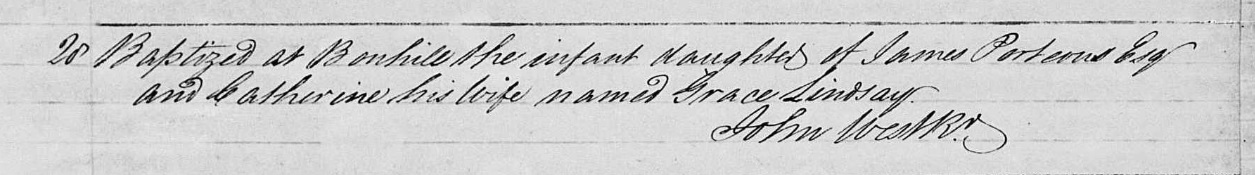 28 Baptized at Bonhill the infant daughter of James Porteous Esqr
and Catherine his Wife named Grace Lindsay.
John West Rr